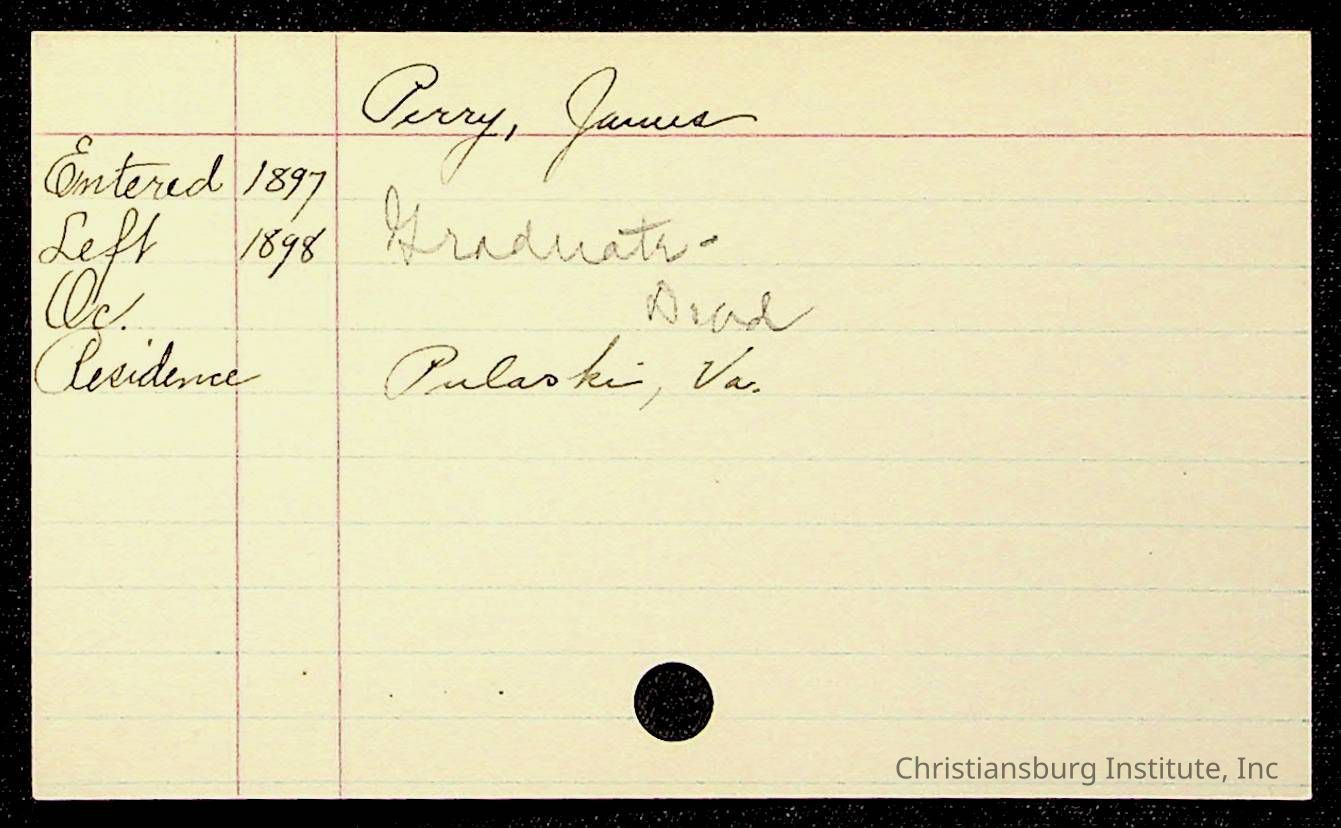 Perry, James
Entered 1897
Left 1898 Graduate -
Oc. Dead
Residence Pulaski, Va.
Christiansburg Institute, Inc